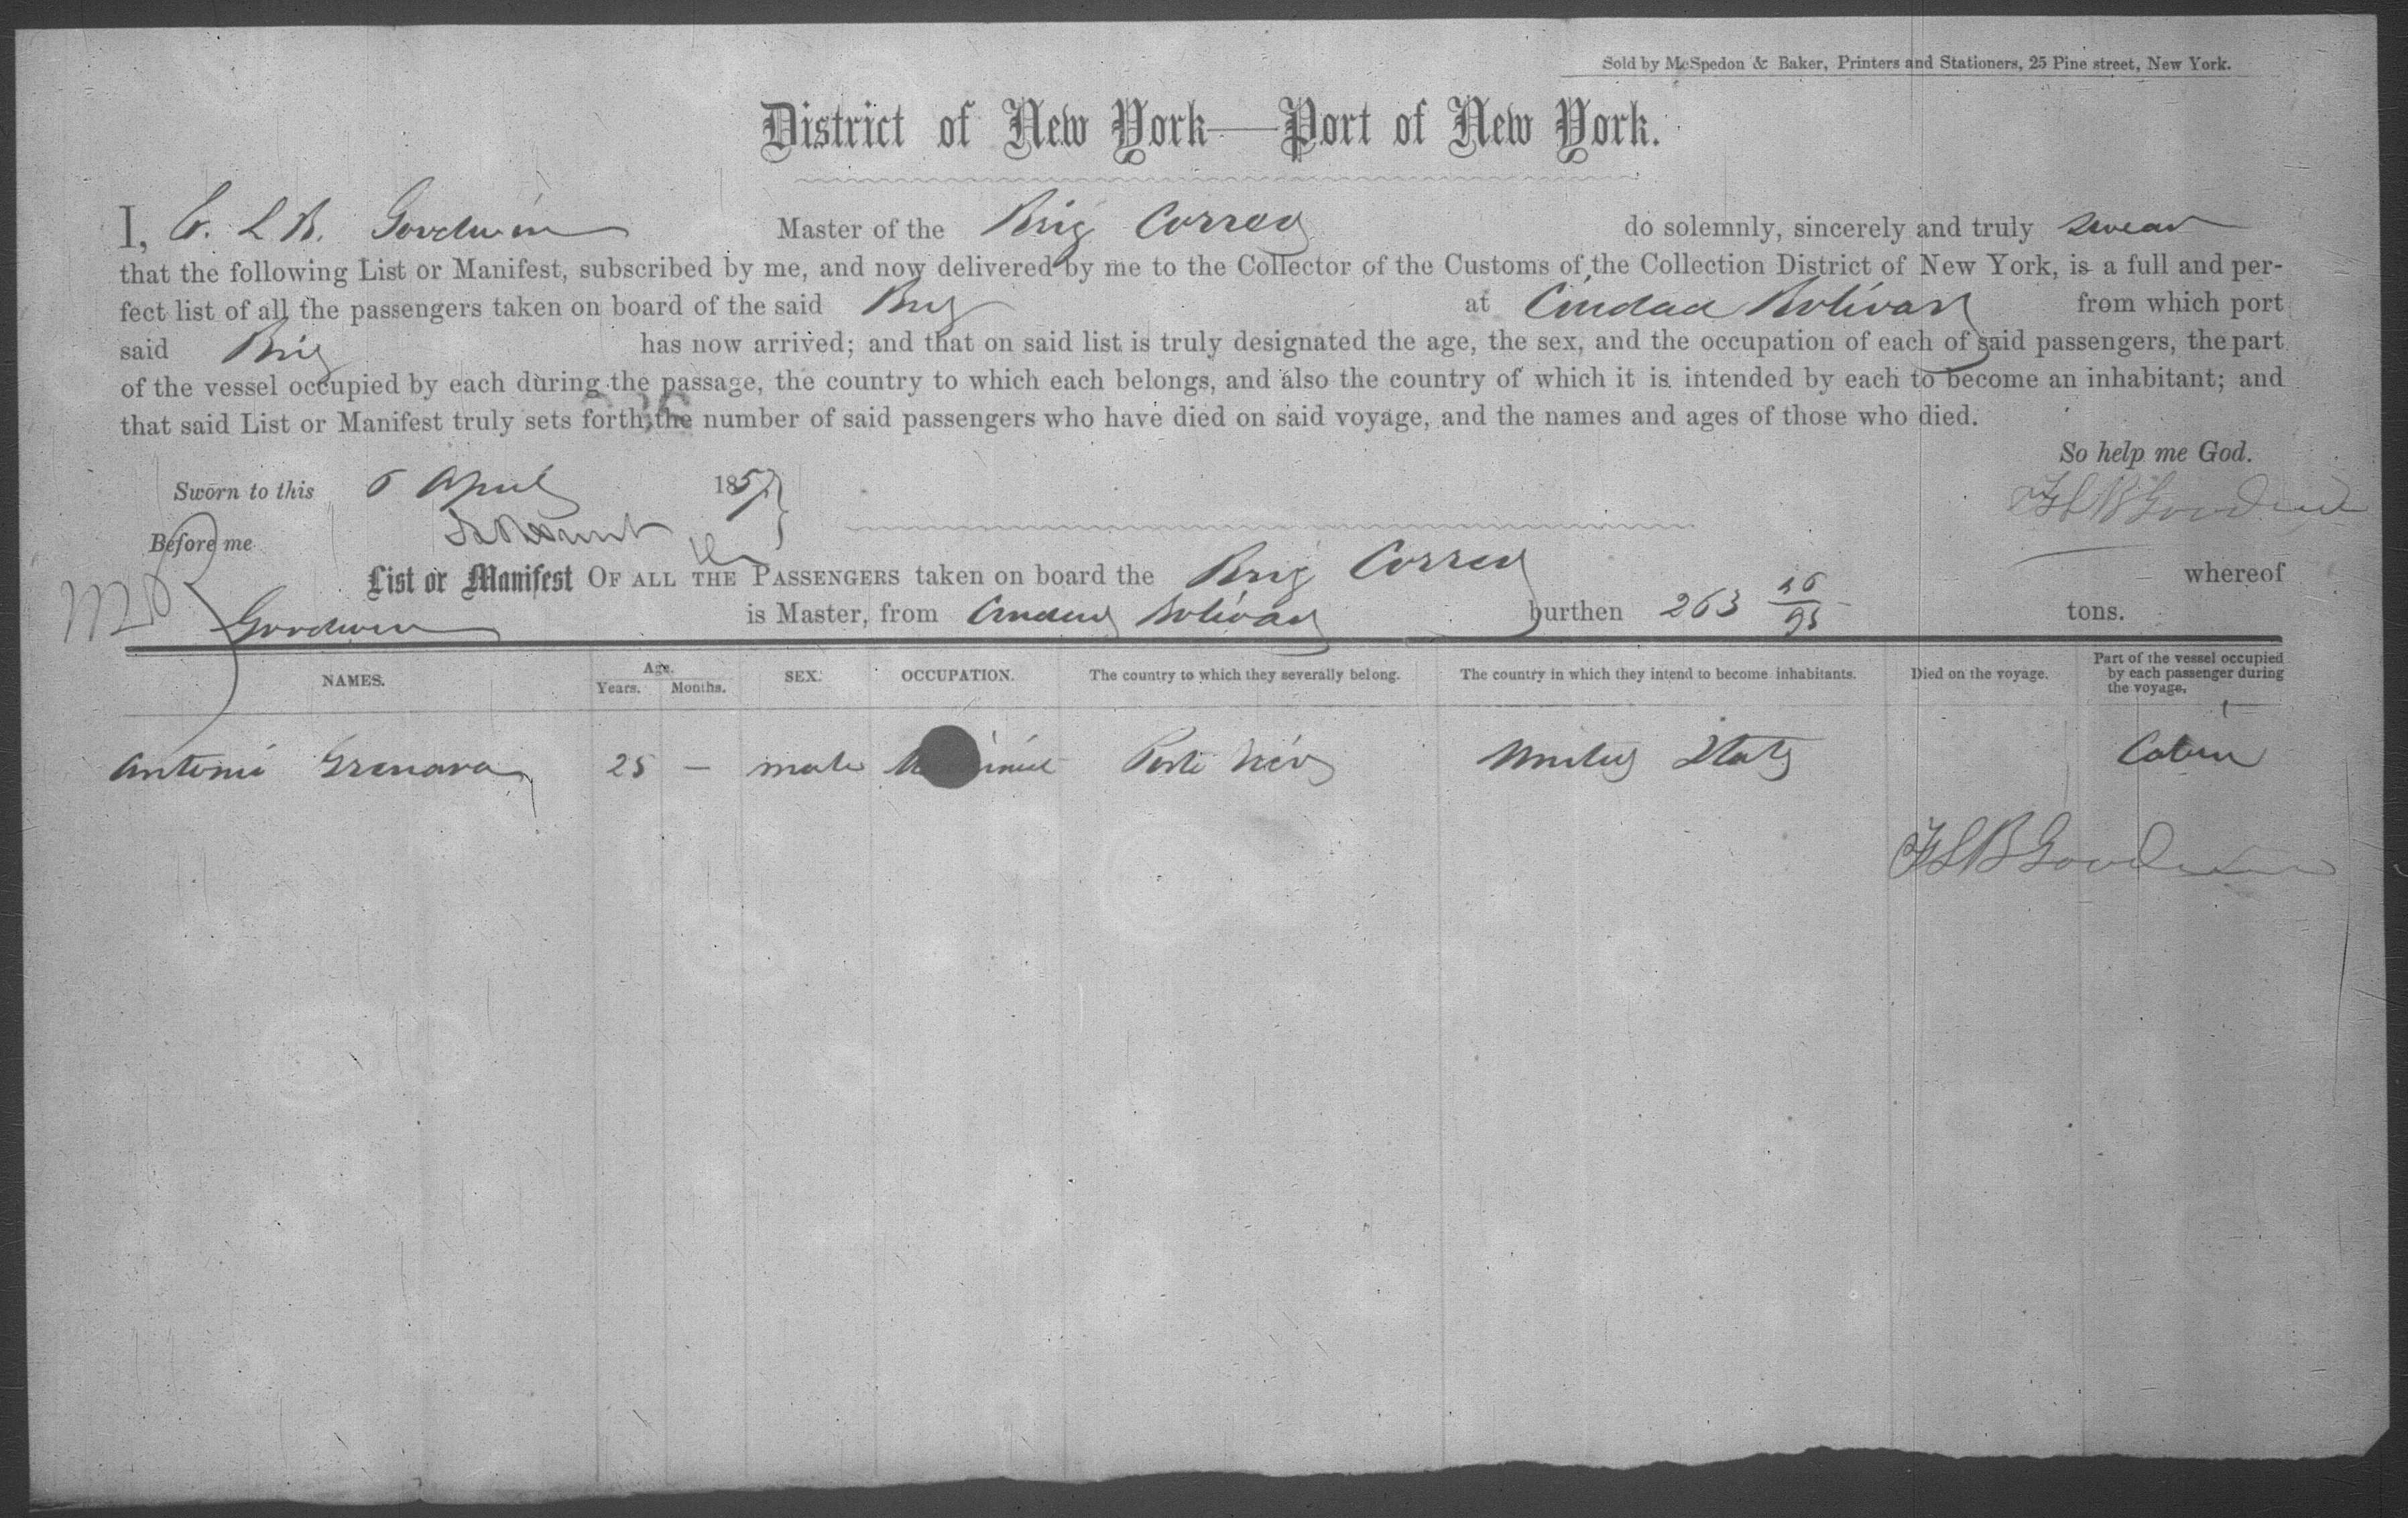 Sold by McSpedon & Baker, Printers and Stationers, 25 Pine street, New York.
District of New York—Port of New York.
I, L B. Goodwin Master of the Brig Correo do solemnly, sincerely and truly swear
that the following List or Manifest, subscribed by me, and now delivered by me to the Collector of the Customs of the Collection District of New York, is a full and per-
fect list of all the passengers taken on board of the said Brig at Ciudad Bolivar from which port
said Brig has now arrived; and that on said list is truly designated the age, the sex, and the occupation of each of said passengers, the part
of the vessel occupied by each during the passage, the country to which each belongs, and also the country of which it is intended by each to become an inhabitant; and
that said List or Manifest truly sets forth the number of said passengers who have died on said voyage, and the names and ages of those who died.
So help me God.
Sworn to this 6 April 1857
L B Goodwin
Before me
List or Manifest OF ALL THE PASSENGERS taken on board the Brig Correo whereof
Goodwin is Master, from Ciudad Bolivar burthen 263 tons.
NAMES. Age. Years. Months. SEX. OCCUPATION. The country to which they severally belong. The country in which they intend to become inhabitants. Died on the voyage. Part of the vessel occupied by each passenger during the voyage.
Antonio 25 — male Porto Rico United States Cabin
L B Goodwin